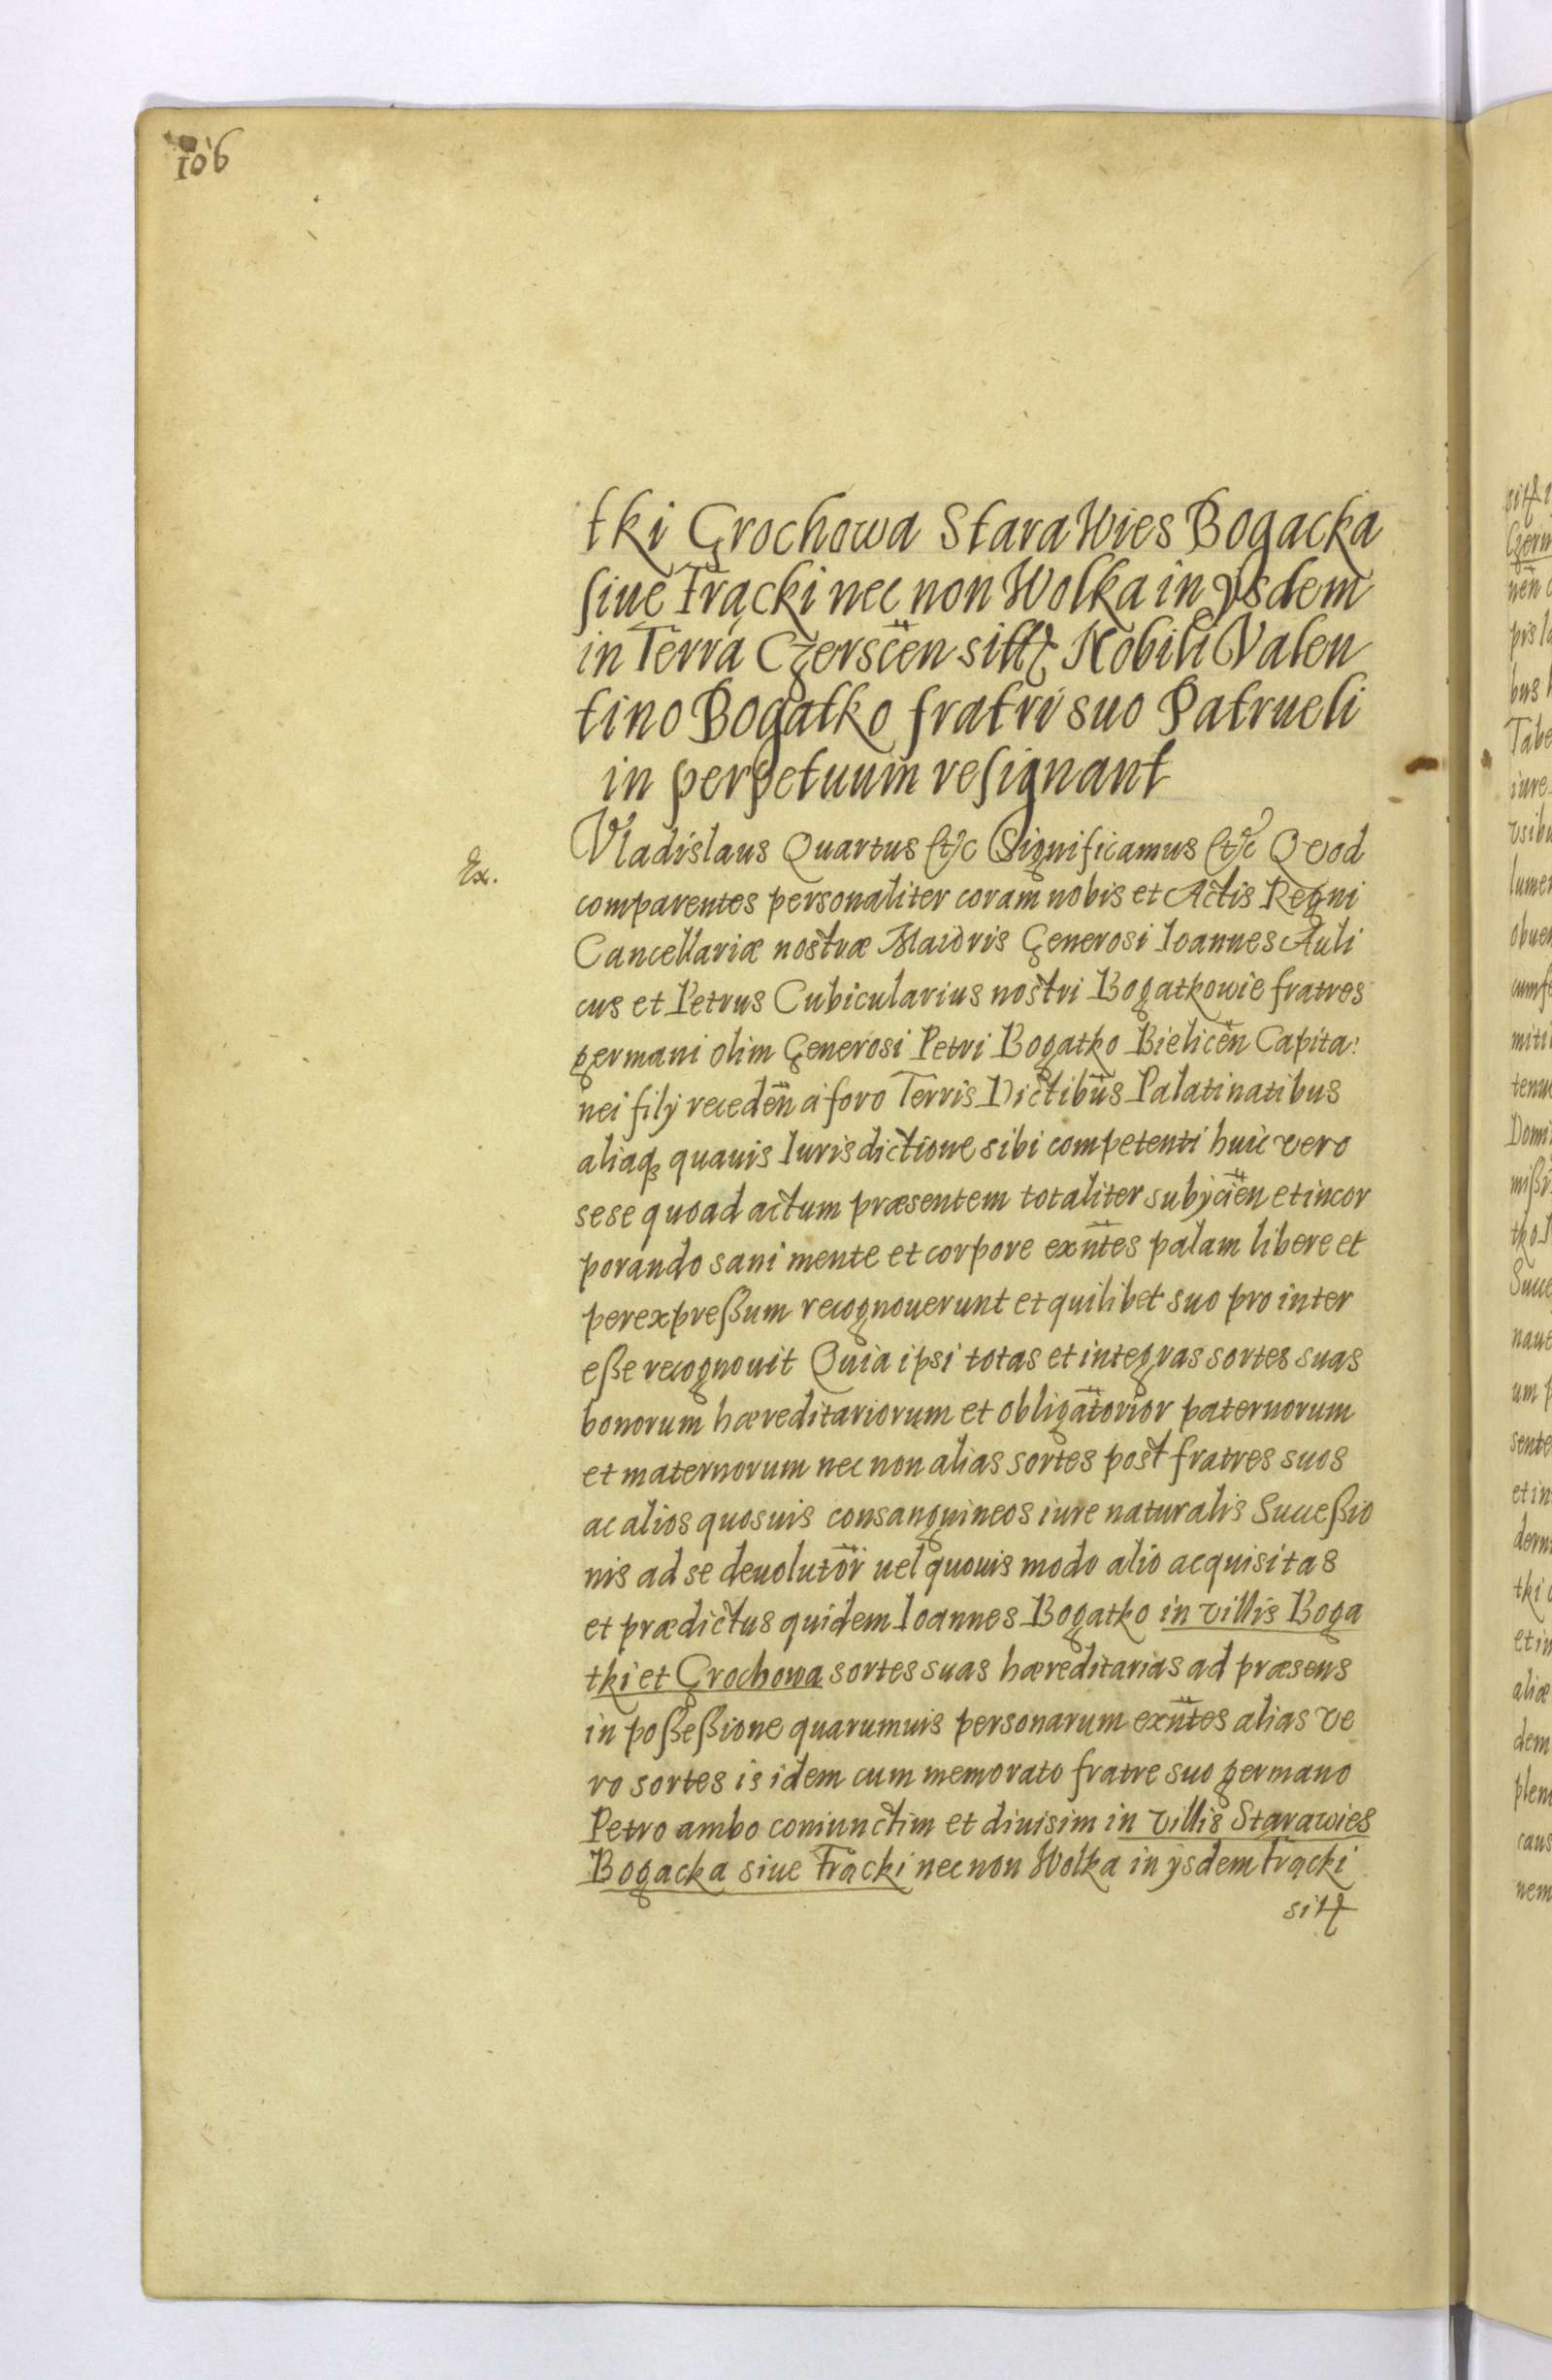 106
tki Grochowa Stara Wies Bogacka
siue Frącki nec non Wolka in ysdem
in Terra Czerscen sitt Nobili Valen
tino Bogatko fratri suo Patrueli
in perpetuum resignant
Ex.
Vladislaus Quartus etc Significamus etc Quod
comparentes personaliter coram nobis et Actis Regni
Cancellariæ nostræ Maioris Generosi Ioannes Auli
cus et Petrus Cubicularius nostri Bogatkowie fratres
germani olim Generosi Petri Bogatko Bielicen Capita:
nei filÿ receden a foro Terris Dictibus Palatinatibus
aliaqꝫ quauis Iurisdictione sibi competenti huic vero
sese quoad actum præsentem totaliter subÿcien et incor
porando sani mente et corpore exñtes palam libere et
per expreßum recognouerunt et quilibet suo pro inter
eße recognouit Quia ipsi totas et integras sortes suas
bonorum hæreditariorum et obligatorior paternorum
et maternorum nec non alias sortes post fratres suos
ac alios quosuis consanguineos iure naturalis Succeßio
nis ad se deuolutor uel quouis modo alio acquisitas
et prædictus quidem Ioannes Bogatko in villis Boga
tki et Grochowa sortes suas hæreditarias ad præsens
in poßeßione quarumuis personarum exñtes alias ve
ro sortes is idem cum memorato fratre suo germano
Petro ambo coniunctim et diuisim in villis Starawies
Bogacka siue Frącki nec non Wolka in ÿsdem Frącki
sitt